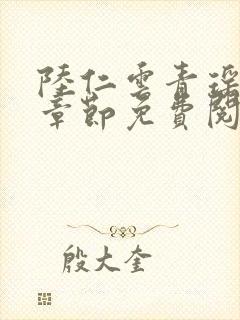 陸仁雲青瑶
章節免費閱
殷大奎